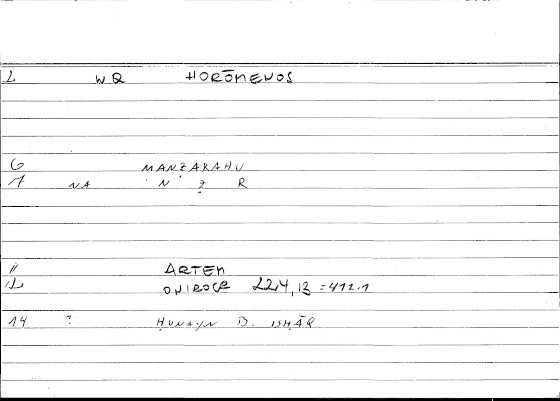 1 WQ HORŌMENOS
6 MANẒARAHU
7 NA N Ẓ R
11 ARTEM
12 ONIROCR 224,13 = 412.1
14 ? ḤUNAYN B. ISḤĀQ